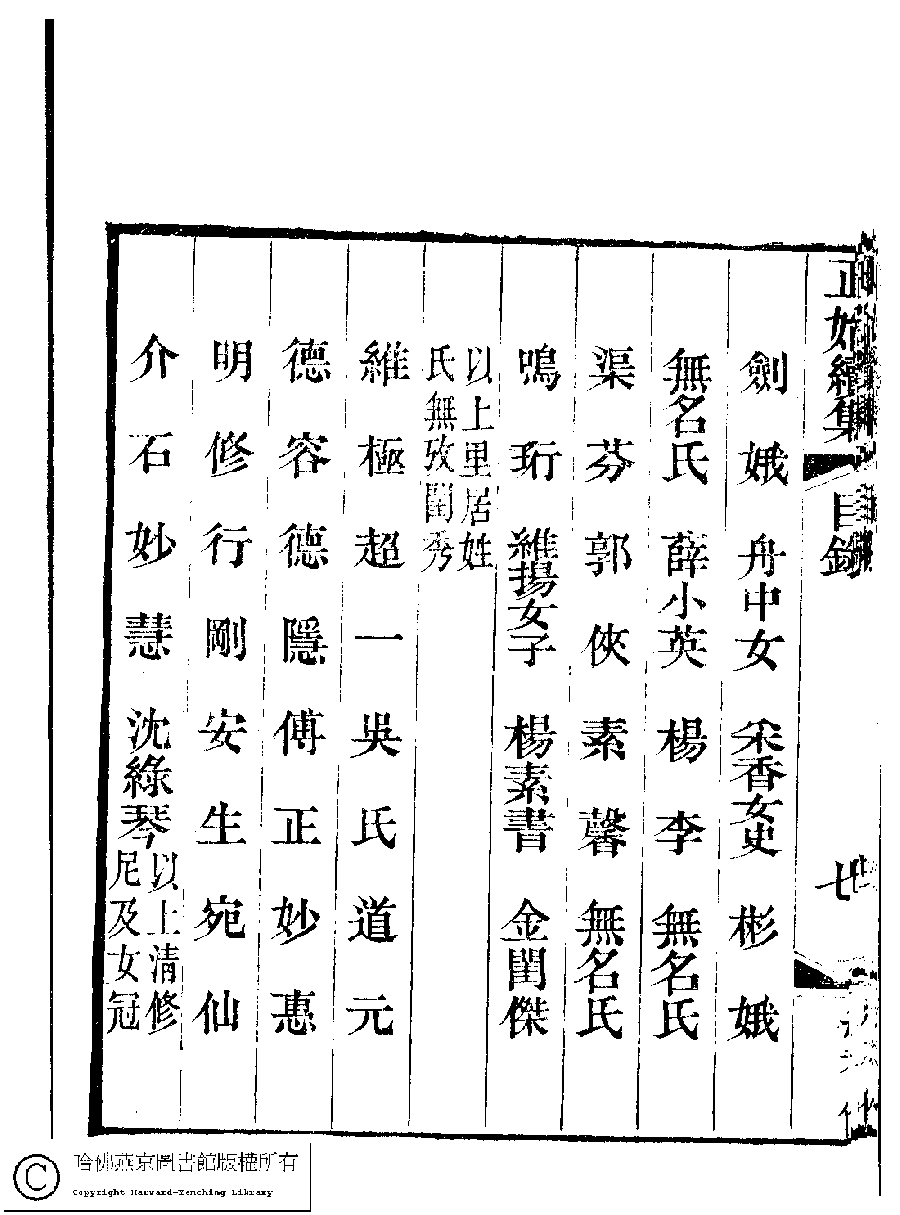 正始續集 目錄 七
劍娥 舟中女 宋香女史 彬娥
無名氏 薛小英 楊李 無名氏
渠芬 郭俠 素馨 無名氏
鳴珩 維揚女子 楊素書 金閨傑
以上里居姓
氏無攷閨秀
維極 超一 吳氏 道元
德容 德隱 傅正 妙惠
明修 行剛 安生 宛仙
介石 妙慧 沈綠琴 以上清修
尼及女冠
哈佛燕京圖書館版權所有
Copyright Harvard-Yenching Library